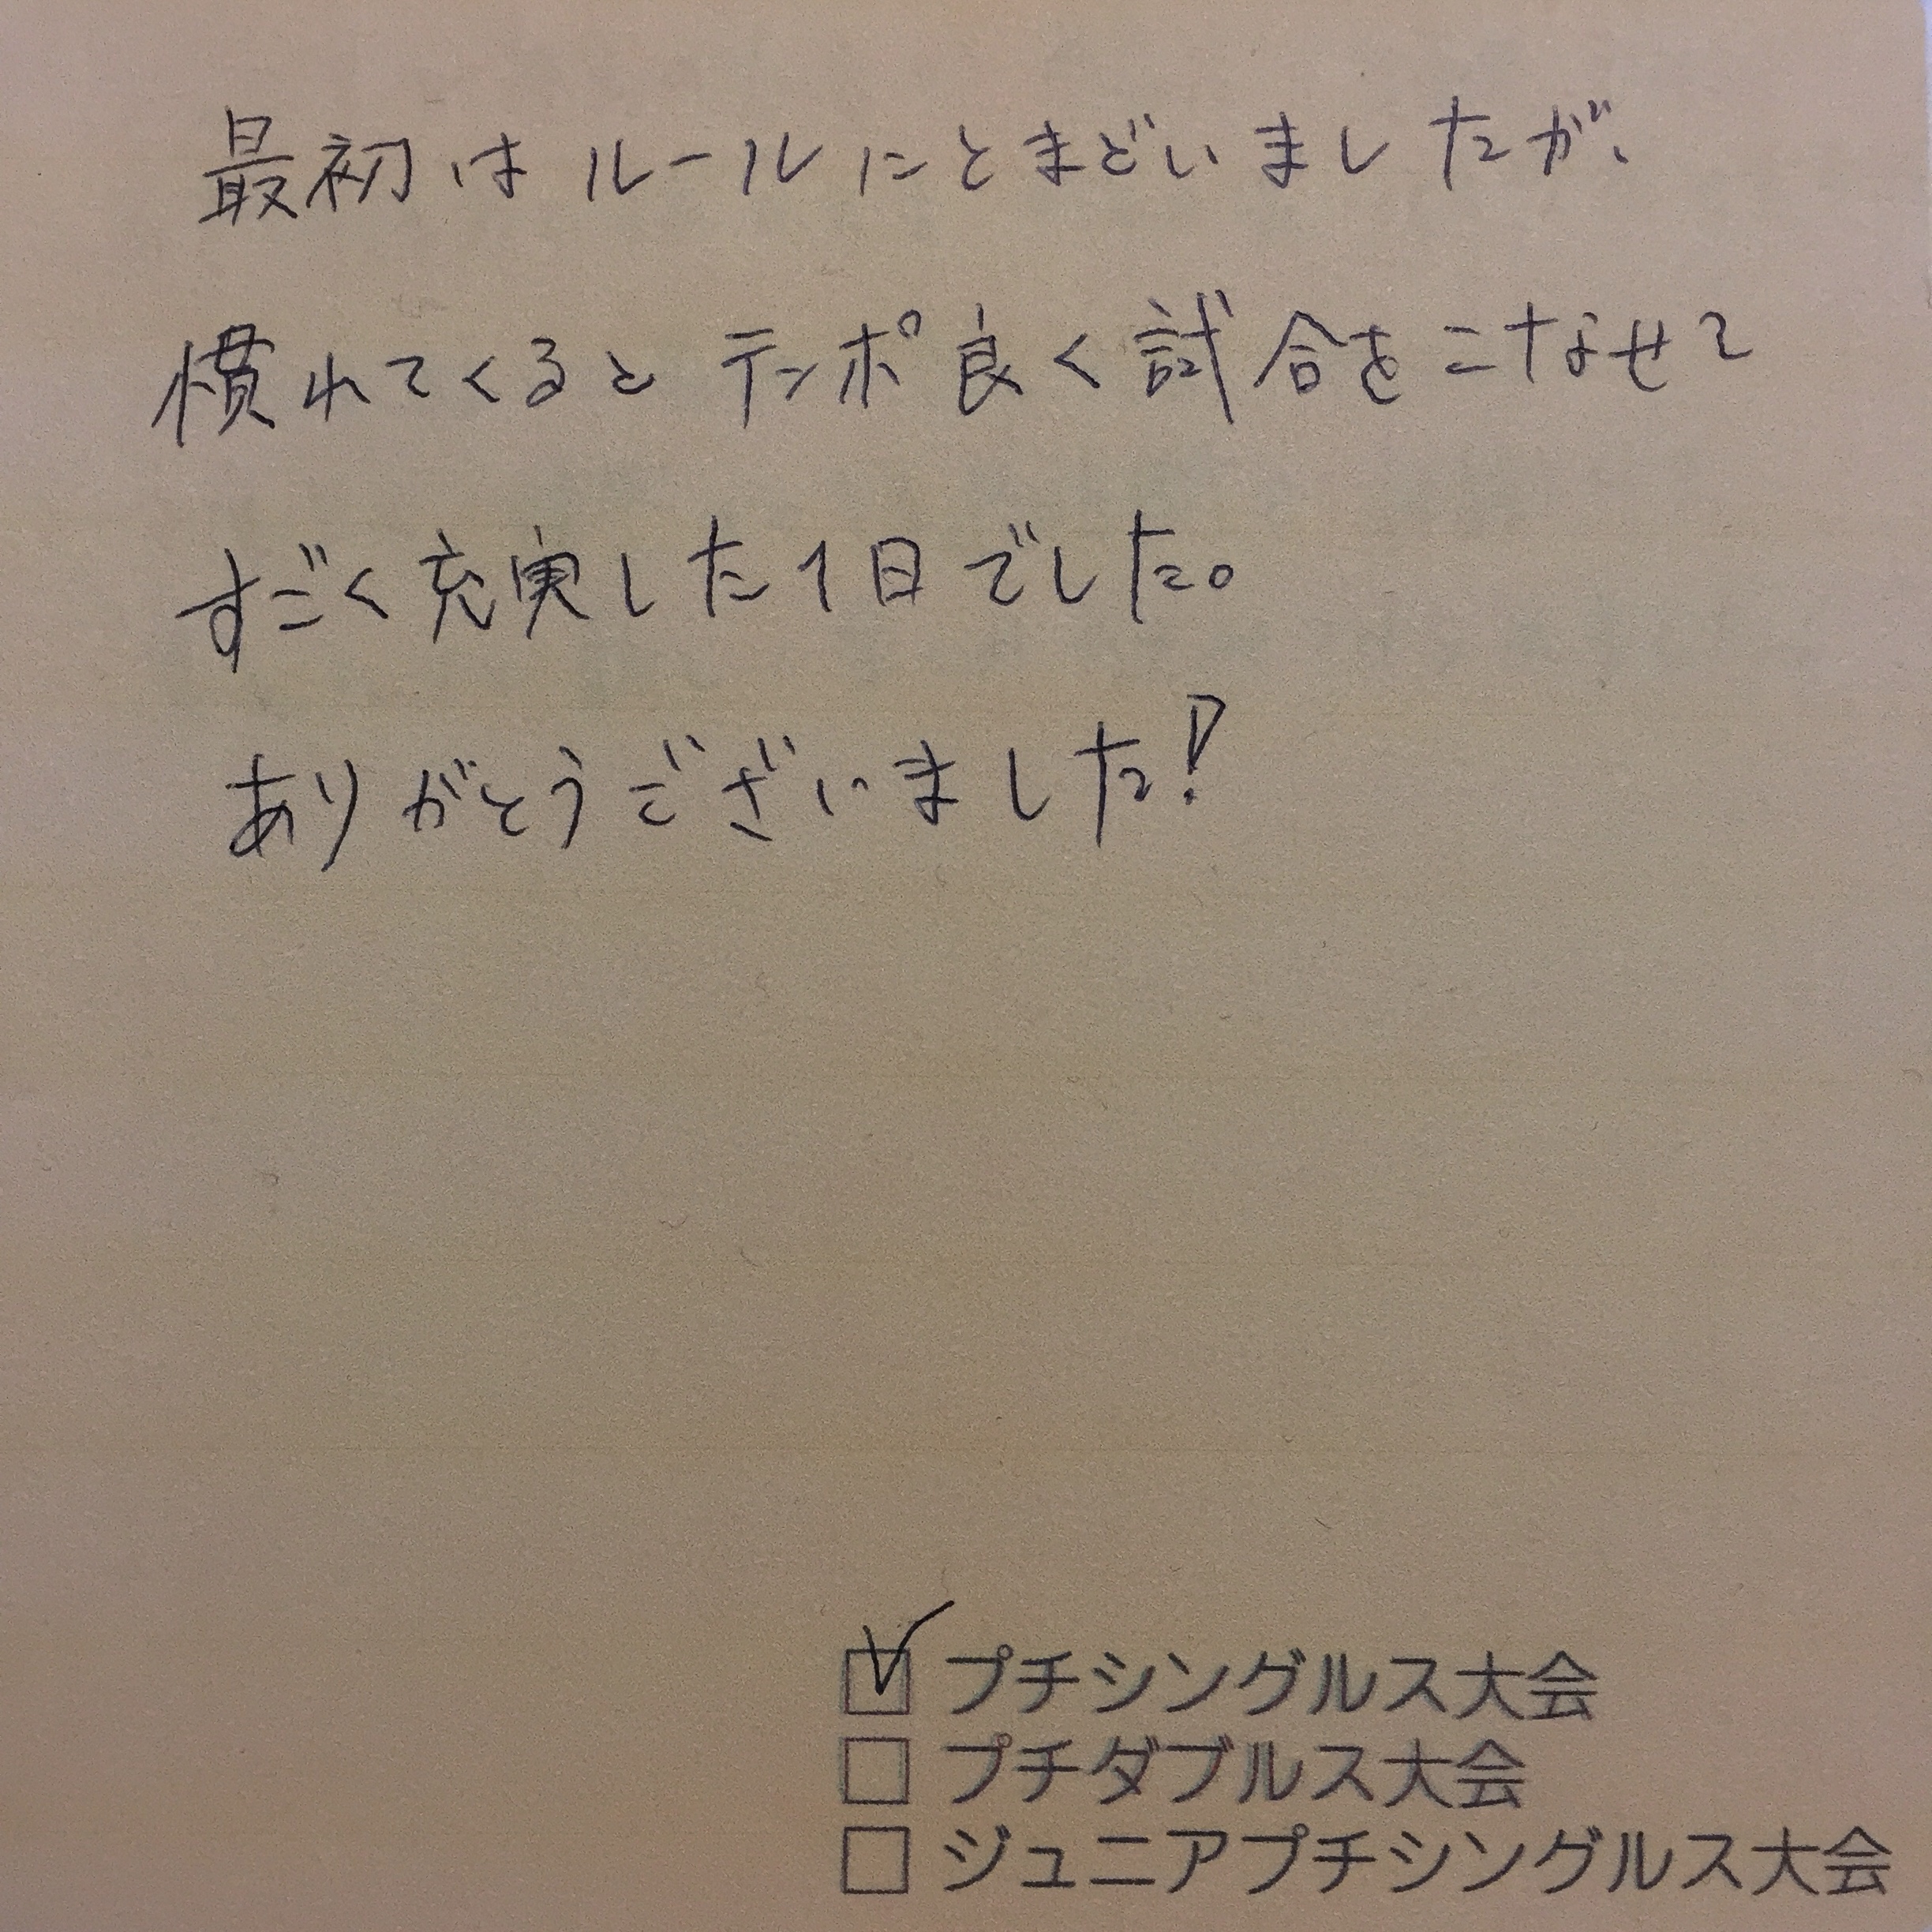 最初はルールにとまどいましたが、
慣れてくるとテンポ良く試合をこなせて
すごく充実した1日でした。
ありがとうございました!
☑ プチシングルス大会
□ プチダブルス大会
□ ジュニアプチシングルス大会